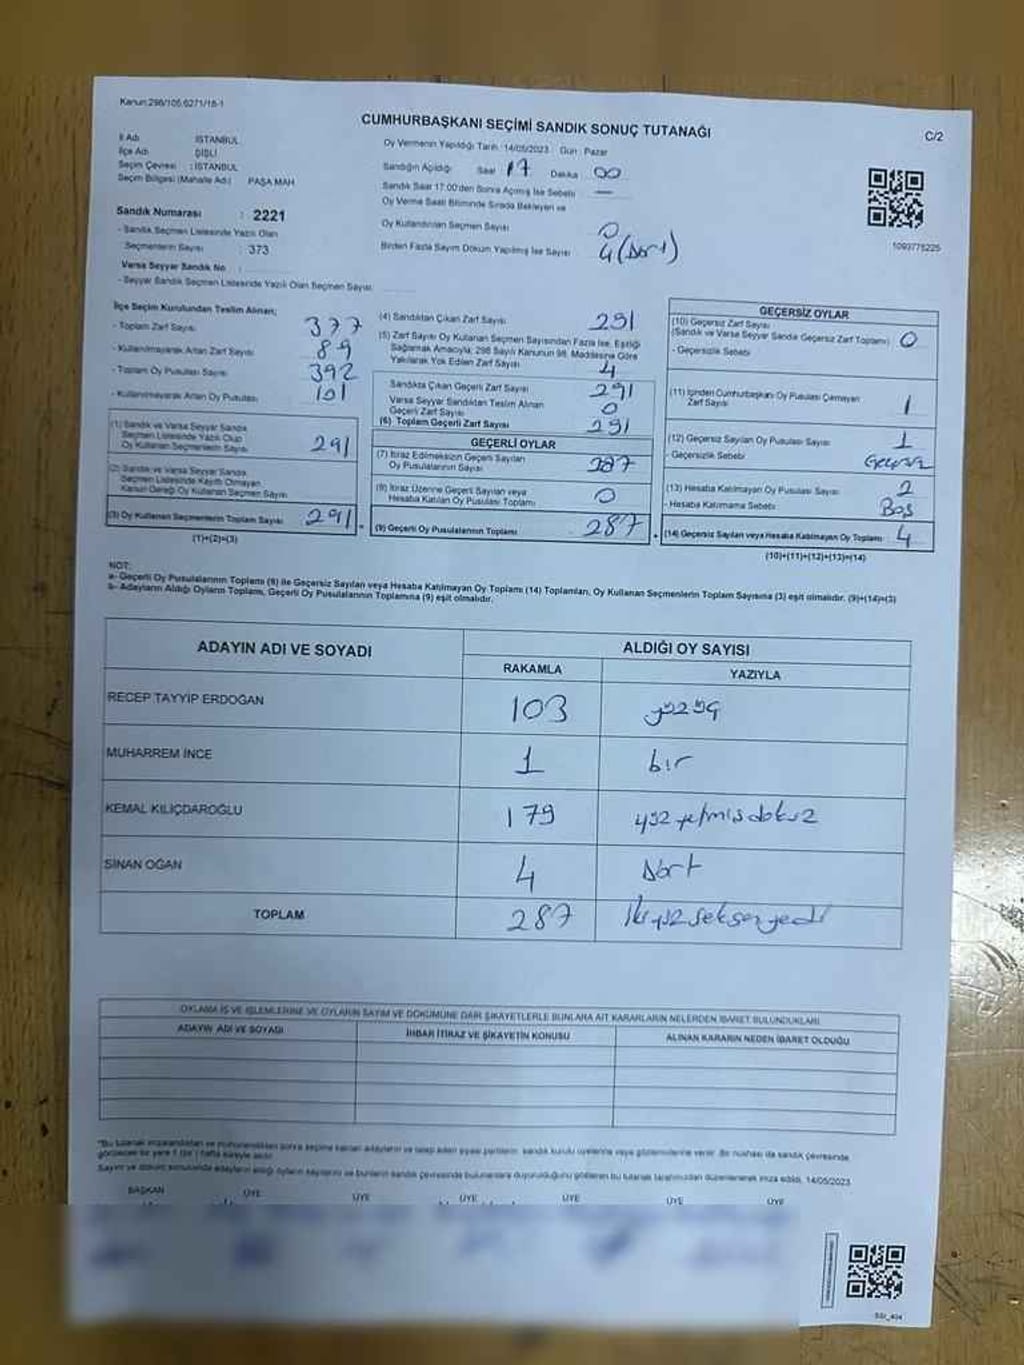 Kanun:298/105,6271/18-1
CUMHURBAŞKANI SEÇİMİ SANDIK SONUÇ TUTANAĞI
C/2
İl Adı : İSTANBUL
İlçe Adı : ŞİŞLİ
Seçim Çevresi : İSTANBUL
Seçim Bölgesi (Mahalle Adı) PAŞA MAH
Sandık Numarası : 2221
- Sandık Seçmen Listesinde Yazılı Olan
Seçmenlerin Sayısı : 373
Varsa Seyyar Sandık No :
- Seyyar Sandık Seçmen Listesinde Yazılı Olan Seçmen Sayısı:
Oy Vermenin Yapıldığı Tarih :14/05/2023 Gün : Pazar
Sandığın Açıldığı Saat 17 Dakika 00
Sandık Saat 17:00'den Sonra Açılmış İse Sebebi —
Oy Verme Saati Bitiminde Sırada Bekleyen ve
Oy Kullandırılan Seçmen Sayısı 0
Birden Fazla Sayım Döküm Yapılmış İse Sayısı 4 (Dört)
1093775225
İlçe Seçim Kurulundan Teslim Alınan;
- Toplam Zarf Sayısı 377
- Kullanılmayarak Artan Zarf Sayısı 89
- Toplam Oy Pusulası Sayısı 392
- Kullanılmayarak Artan Oy Pusulası 101
(1) Sandık ve Varsa Seyyar Sandık
Seçmen Listesinde Yazılı Olup
Oy Kullanan Seçmenlerin Sayısı 291
(2) Sandık ve Varsa Seyyar Sandık
Seçmen Listesinde Kayıtlı Olmayan
Kanun Gereği Oy Kullanan Seçmen Sayısı
(3) Oy Kullanan Seçmenlerin Toplam Sayısı 291
(1)+(2)=(3)
(4) Sandıktan Çıkan Zarf Sayısı 291
(5) Zarf Sayısı Oy Kullanan Seçmen Sayısından Fazla İse, Eşitliği
Sağlamak Amacıyla; 298 Sayılı Kanunun 98. Maddesine Göre
Yakılarak Yok Edilen Zarf Sayısı 4
Sandıkta Çıkan Geçerli Zarf Sayısı 291
Varsa Seyyar Sandıktan Teslim Alınan
Geçerli Zarf Sayısı 0
(6) Toplam Geçerli Zarf Sayısı 291
GEÇERLİ OYLAR
(7) İtiraz Edilmeksizin Geçerli Sayılan
Oy Pusulalarının Sayısı 287
(8) İtiraz Üzerine Geçerli Sayılan veya
Hesaba Katılan Oy Pusulası Toplamı 0
(9) Geçerli Oy Pusulalarının Toplamı 287
GEÇERSİZ OYLAR
(10) Geçersiz Zarf Sayısı
(Sandık ve Varsa Seyyar Sandık Geçersiz Zarf Toplamı) 0
- Geçersizlik Sebebi
(11) İçinden Cumhurbaşkanı Oy Pusulası Çıkmayan
Zarf Sayısı 1
(12) Geçersiz Sayılan Oy Pusulası Sayısı 1
- Geçersizlik Sebebi Geçersiz
(13) Hesaba Katılmayan Oy Pusulası Sayısı 2
- Hesaba Katılmama Sebebi Boş
(14) Geçersiz Sayılan veya Hesaba Katılmayan Oy Toplamı 4
(10)+(11)+(12)+(13)=(14)
NOT:
a- Geçerli Oy Pusulalarının Toplamı (9) ile Geçersiz Sayılan veya Hesaba Katılmayan Oy Toplamı (14) Toplamları, Oy Kullanan Seçmenlerin Toplam Sayısına (3) eşit olmalıdır. (9)+(14)=(3)
b- Adayların Aldığı Oyların Toplamı, Geçerli Oy Pusulalarının Toplamına (9) eşit olmalıdır.
ADAYIN ADI VE SOYADI
ALDIĞI OY SAYISI
RAKAMLA YAZIYLA
RECEP TAYYİP ERDOĞAN 103
MUHARREM İNCE 1 bir
KEMAL KILIÇDAROĞLU 179 yüz yetmiş dokuz
SİNAN OĞAN 4 Dört
TOPLAM 287 İki yüz seksen yedi
OYLAMA İŞ VE İŞLEMLERİNE VE OYLARIN SAYIM VE DÖKÜMÜNE DAİR ŞİKAYETLERLE BUNLARA AİT KARARLARIN NELERDEN İBARET BULUNDUKLARI
ADAYIN ADI VE SOYADI İHBAR İTİRAZ VE ŞİKAYETİN KONUSU ALINAN KARARIN NEDEN İBARET OLDUĞU
Sayım ve döküm sonucunda adayların aldığı oyların sayılarını ve bunların sandık çevresinde bulunanlara duyurulduğunu gösteren bu tutanak tarafımızdan düzenlenerek imza edildi. 14/05/2023
BAŞKAN ÜYE ÜYE ÜYE ÜYE ÜYE ÜYE